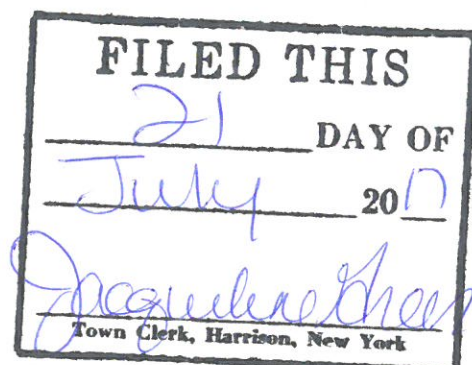 FILED THIS
21 DAY OF
July 2017
Jacqueline Greer
Town Clerk, Harrison, New York